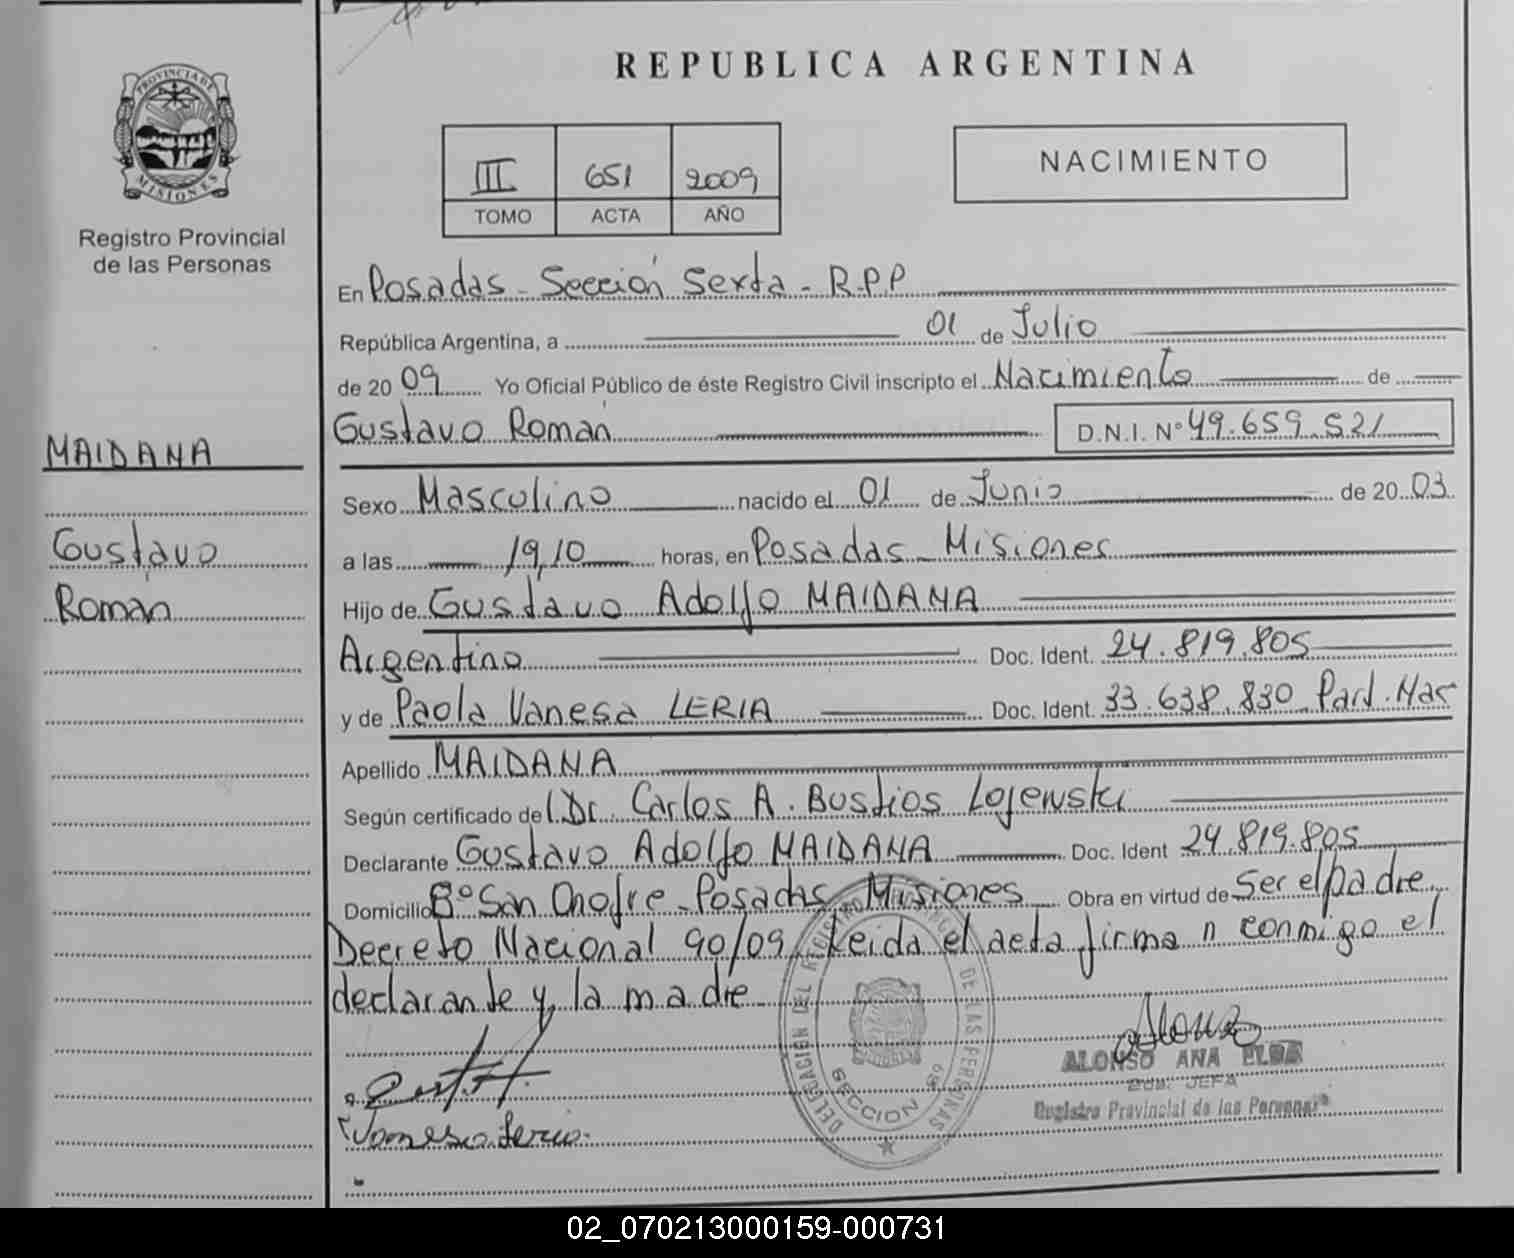 REPUBLICA ARGENTINA
PROVINCIA DE
MISIONES
Registro Provincial
de las Personas
III 651 2009
TOMO ACTA AÑO
NACIMIENTO
MAIDANA
Gustavo
Román
En Posadas - Sección Sexta - R.P.P
República Argentina, a 01 de Julio
de 20 09 Yo Oficial Público de éste Registro Civil inscripto el Nacimiento de
Gustavo Román D.N.I. Nº 49.659.521
Sexo Masculino nacido el 01 de Junio de 20 03
a las 19,10 horas, en Posadas - Misiones
Hijo de Gustavo Adolfo MAIDANA
Argentino Doc. Ident. 24.819.805
y de Paola Vanesa LERIA Doc. Ident. 33.638.830 Part. Nac
Apellido MAIDANA
Según certificado del Dr. Carlos A. Bustios Lojewski
Declarante Gustavo Adolfo MAIDANA Doc. Ident 24.819.805
Domicilio Bº San Onofre - Posadas - Misiones Obra en virtud de Ser el padre
Decreto Nacional 90/09, Leida el acta firman conmigo el
declarante y la madre
DELEGACION DEL REGISTRO PROVINCIAL DE LAS PERSONAS
SECCION 6º
ALONSO ANA ELBA
SUB. JEFA
Registro Provincial de las Personas
Vanesa Leria
02_070213000159-000731